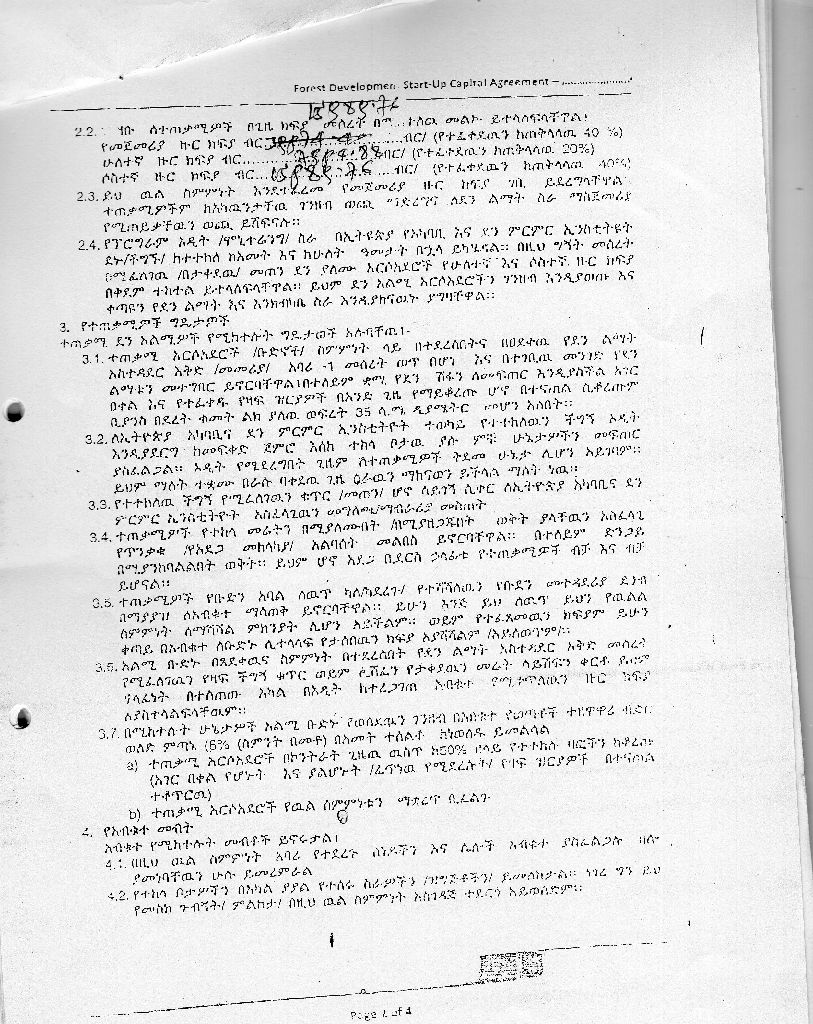 Forest Development Start-Up Capital Agreement – ....................
15989.76
2.2. ገቡ ለተጠቃሚዎች በጊዜ ክፍያ መሰረት በሚ ተለዉ መልኩ ይተላለፍላቸዋል፣
የመጀመሪያ ዙር ክፍያ ብር ብር/ (የተፈቀደዉን ከጠቅላላዉ 40 %)
ሁለተኛ ዙር ክፍያ ብር............7994.88 ብር/ (የተፈቀደዉን ከጠቅላላዉ 20%)
ሶስተኛ ዙር ክፍያ ብር...15989.76 ....ብር/ (የተፈቀደዉን ከጠቅላላዉ 40%)
2.3. ይህ ዉል ስምምነት እንደተፈረመ የመጀመሪያ ዙር ክፍያ ገቢ ይደረግላቸዋል
ተጠቃሚዎችም ከአካዉንታቸዉ ገንዘብ ወጪ ማድረግና ለደን ልማት ስራ ማስጀመሪያ
የሚጠይቃቸዉን ወጪ ይሸፍናሉ፡፡
2.4. የፕሮግራም አዲት /ሞኒተሪንግ/ ስራ በኢትዮጵያ የአካባቢ እና ደን ምርምር ኢንስቲትዩት
ደኑ/ችግኙ/ ከተተከለ ከአመት እና ከሁለት ዓመታት በኋላ ይካሄዳል፡፡ በዚህ ግኝት መሰረት
በሚፈለገዉ /በታቀደዉ/ መጠን ደን ያለሙ አርሶአደሮች የሁለተኛ እና ሶስተኛ ዙር ክፍያ
በቅደም ተከተል ይተላለፍላቸዋል፡፡ ይህም ደን አልሚ አርሶአደሮችን ገንዘብ እንዲያወጡ እና
ቀጣዩን የደን ልማት እና እንክብካቤ ስራ እንዲያከናዉኑ ያግዛቸዋል፡፡
3. የተጠቃሚዎች ግዴታዎች
ተጠቃሚ ደን አልሚዎች የሚከተሉት ግዴታወች አሉባቸዉ፣-
3.1. ተጠቃሚ አርሶአደሮች /ቡድኖች/ ስምምነት ላይ በተደረሰበትና በፀደቀዉ የደን ልማት
አስተዳደር እቅድ /መመሪያ/ አባሪ -1 መሰረት ወጥ በሆነ እና በተገቢዉ መንገድ የደን
ልማቱን መተግበር ይኖርባቸዋል፣በተለይም ቋሚ የደን ሽፋን ለመፍጠር እንዲያስችል አገር
በቀል እና የተፈቀዱ የዛፍ ዝርያዎች በአንድ ጊዜ የማይቆረጡ ሆኖ በተናጠል ሲቆረጡም
ቢያንስ በደረት ቁመት ልክ ያለዉ ወፍረት 35 ሳ.ሜ ዲያሜትር መሆን አለበት፡፡
3.2. ለኢትዮጵያ አካባቢና ደን ምርምር ኢንስቲትዮት ተወካይ የተተከለዉን ችግኝ ኦዲት
እንዲያደርግ ከመፍቀድ ጀምሮ እስከ ተከላ ቦታዉ ያሉ ምቹ ሁኔታዎችን መፍጠር
ያስፈልጋል፡፡ ኦዲት የሚደረግበት ጊዜም ለተጠቃሚዎች ቅድመ ሁኔታ ሊሆን አይገባም፡፡
ይህም ማለት ተቋሙ በራሱ ባቀደዉ ጊዜ ስራዉን ማከናወን ይችላል ማለት ነዉ፡፡
3.3. የተተከለዉ ችግኝ የሚፈለገዉን ቁጥር /መጠን/ ሆኖ ሳይገኝ ሲቀር ለኢትዮጵያ አካባቢና ደን
ምርምር ኢንስቲትዮት አስፈላጊዉን መግለጫ/ማብራሪያ መስጠት
3.4. ተጠቃሚዎች የተከላ መሬትን በሚያለሙበት /በሚያዘጋጁበት ወቅት ያላቸዉን አስፈላጊ
የጥንቃቄ /የአደጋ መከላከያ/ አልባሳት መልበስ ይኖርባቸዋል፡፡ በተለይም ድንጋይ
በሚያንከባልልበት ወቅት፡፡ ይህም ሆኖ አደጋ ቢደርስ ኃላፊቱ የተጠቃሚዎች ብቻ እና ብቻ
ይሆናል፡፡
3.5. ተጠቃሚዎች የቡድን አባል ለዉጥ ካለ/ከደረገ/ የተሻሻለዉን የቡድን መተዳደሪያ ደንብ
በማያያዝ ለአብቁተ ማሳወቅ ይኖርባቸዋል፡፡ ይሁን እንጅ ይህ ለዉጥ ይህን የዉልል
ስምምነት ለማሻሻል ምክንያት ሊሆን አይችልም፡፡ ወይም የተፈጸመዉን ክፍያም ይሁን
ቀጣይ በአብቁተ ለቡድኑ ሊተላለፍ የታሰበዉን ክፍያ አያሻሽልም /አይለወጥም/፡፡
3.6. አልሚ ቡድኑ በጸደቀዉና ስምምነት በተደረሰበት የደን ልማት አስተዳደር እቅድ መሰረት
የሚፈለገዉን የዛፍ ችግኝ ቁጥር ወይም ሊሸፈን የታቀደዉን መሬት ሳይሸፍን ቀርቶ ይህም
ኃላፊነት በተሰጠዉ አካል በኦዲት ከተረጋገጠ አብቁተ የሚቀጥለዉን ዙር ክፍያ
ላያስተላልፍላቸዉም፡፡
3.7. በሚከተሉት ሁኔታዎች አልሚ ቡድኑ የወሰደዉን ገንዘብ በአብቁተ የወጣቶች ተዘዋዋሪ ብድር
ወለድ ምጣኔ (8% (ስምንት በመቶ) በአመት ተሰልቶ ከነወለዱ ይመልሳል
a) ተጠቃሚ አርሶአደሮች በኮንትራት ጊዜዉ ዉስጥ ከ50% በላይ የተተከሉ ዛፎችን ከቆረጡ
(አገር በቀል የሆኑት እና ያልሆኑት /ፈጥነዉ የሚደረሱት/ የዛፍ ዝርያዎች በተናጠል
ተቆጥሮዉ)
b) ተጠቃሚ አርሶአደሮች የዉል ስምምነቱን ማቋረጥ ቢፈልጉ
4. የአብቁተ መብት
አብቁተ የሚከተሉት መብቶች ይኖሩታል፣
4.1. በዚህ ዉል ስምምነት አባሪ የተደረጉ ሰነዶችን እና ሌሎች አብቁተ ያስፈልጋሉ ብሎ
ያመነባቸዉን ሁሉ ይመረምራል
4.2. የተከላ ቦታዎችን በአካል ያያል የተሰሩ ስራዎችን /ዝግጅቶችን/ ይመለከታል፡፡ ነገረ ግን ይህ
የመስክ ጉብኝት/ ምልከታ/ በዚህ ዉል ስምምነት አስገዳጅ ተደርጎ አይወሰድም፡፡
Page 2 of 4